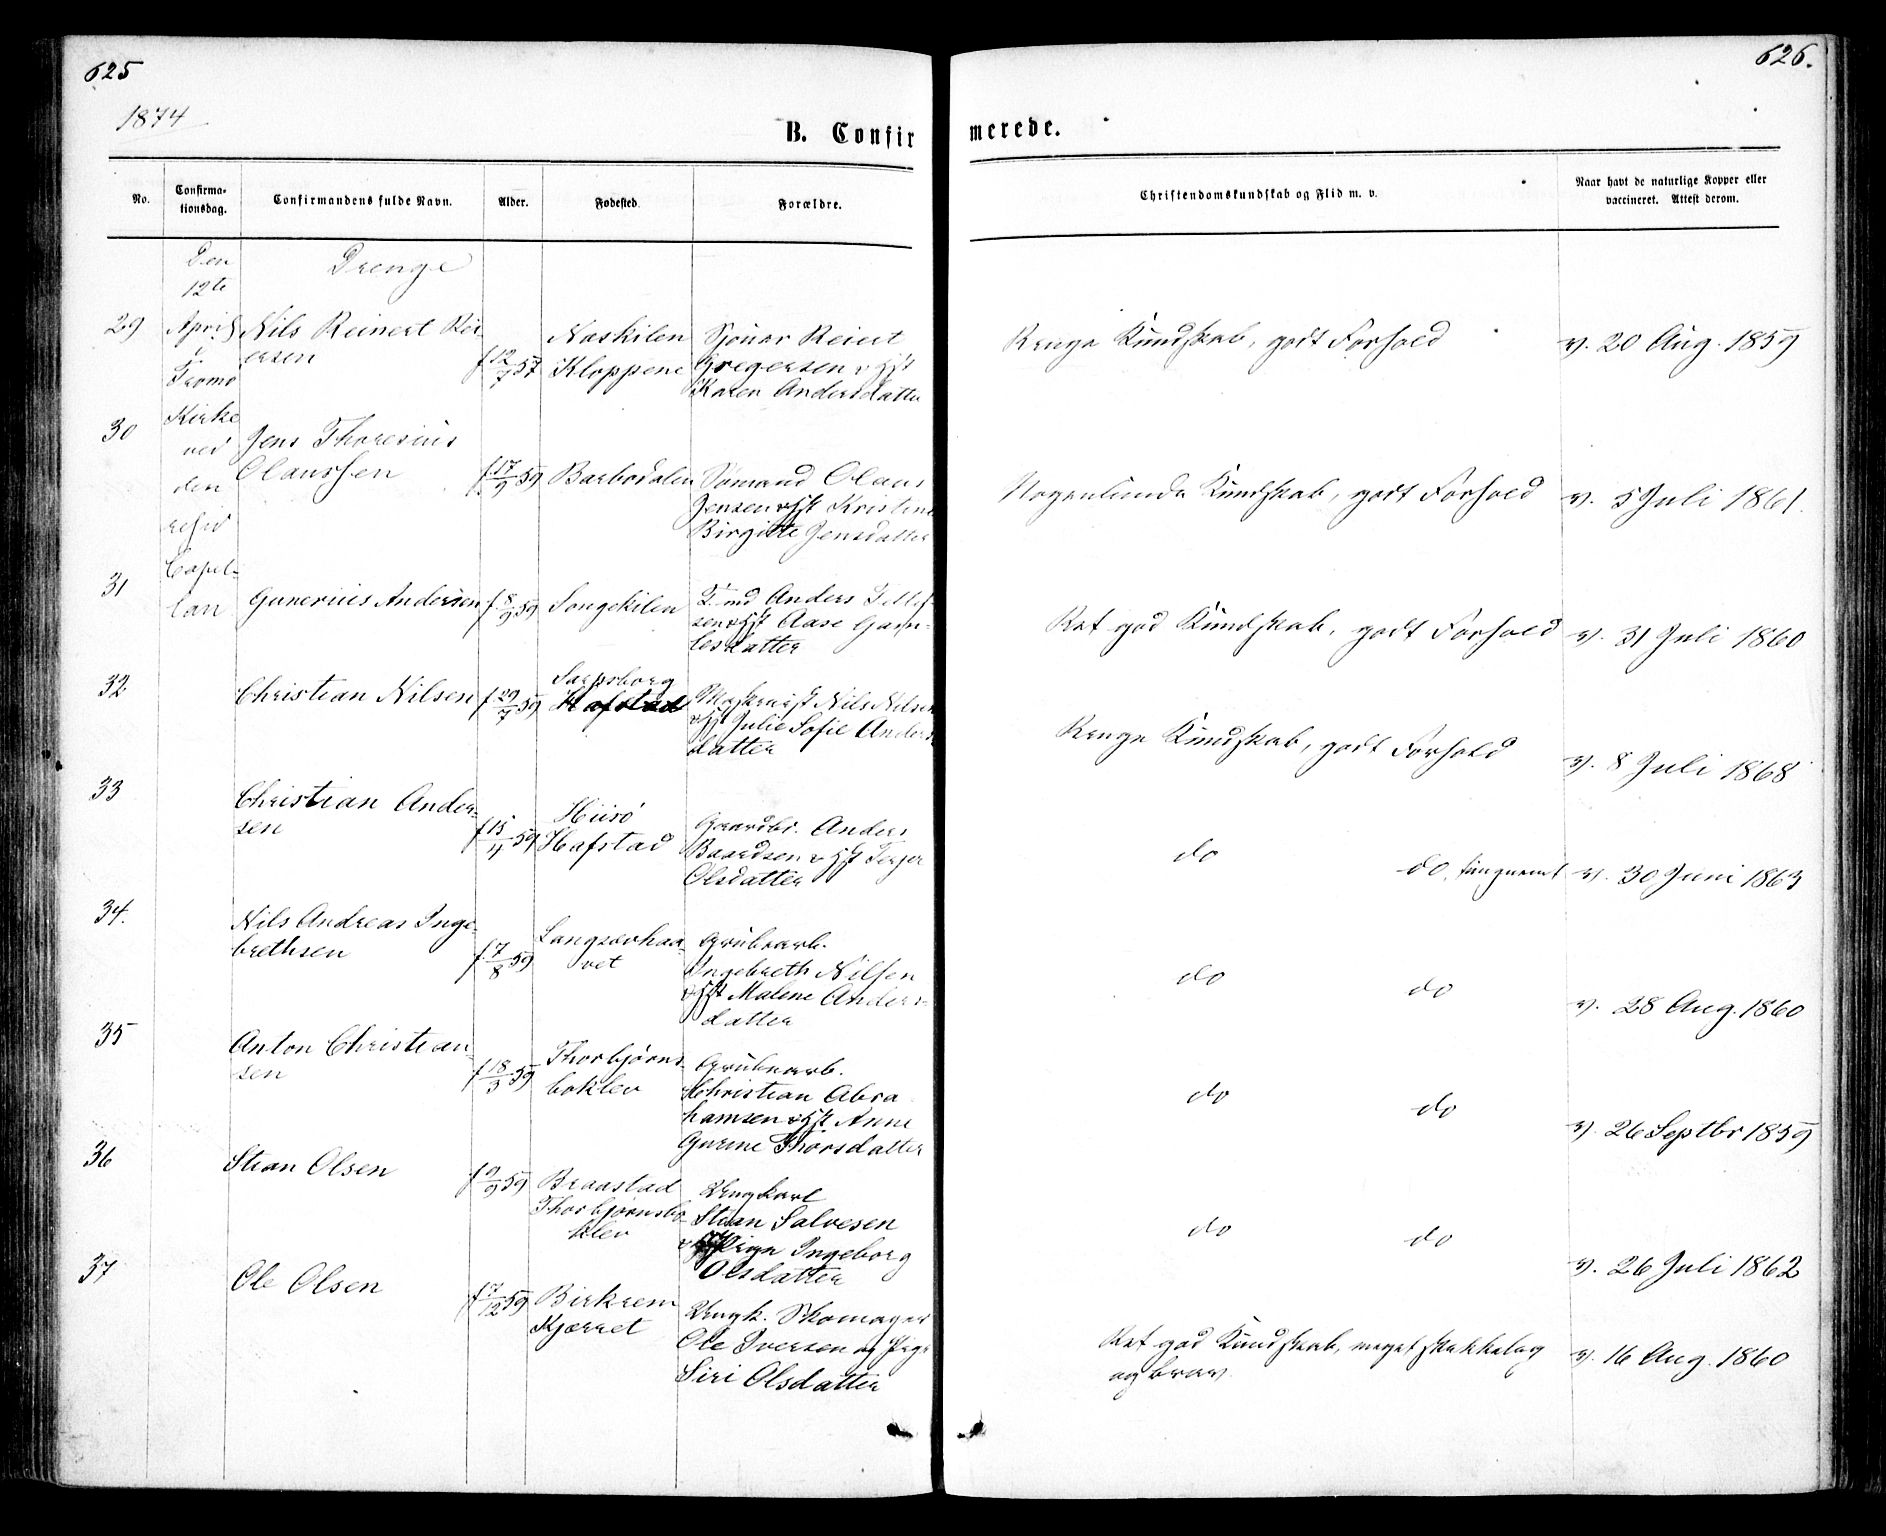 625
626.
1874
B. Confir merede.
No.
Confirma-
tionsdag.
Confirmandens fulde Navn.
Alder.
Fødested.
Forældre.
Christendomskundskab og Flid m. v.
Naar havt de naturlige Kopper eller
vaccineret. Attest derom.
Den
12te
April
i
Tromø
Kirke
ved
den
resid
Capel-
lan
Drenge
29
Nils Reinert Rei-
ersen
f 12/7 57
Naskilen
Kloppene
Sjouer Reiert
Gregersen
Karen Andersdatter
Kundskab, godt Forhold
v. 20 Aug. 1859
30
Jens Thoresius
Olaussen
f. 17/9 59
Barbodalen
Sømand Olaus
Jensen Kristine
Birgitte Jensdatter
Nogenlunde Kundskab, godt Forhold
v. 5 Juli 1861.
31
Gunerius Andersen
f 8/9 59
Songekilen
Anders
sen Aase Gun-
lesdatter
Ret god Kundskab, godt Forhold
v. 31 Juli 1860
32
Christian Nilsen
f 29/7 59
Sarpsborg
Hafstad
Nils Nilsen
Julie Sofie Anders
datter
Kundskab, godt Forhold
v. 8 Juli 1868
33
Christian Ander-
sen
f 15/11 59
Hiisö
Hafstad
Gaardbr. Anders
Baardsen Terjer
Olsdatter
do
do, tungnemt
v. 30 Juni 1863
34.
Nils Andreas Inge-
brethsen
f 7/8 59
Langsævhaa-
vet
Grubearb.
Ingebreth Nilsen
Malene Anders-
datter
do
do
v. 28 Aug. 1860
35
Anton Christian-
sen
f 18/3 59
Thorbjørns-
boklev
Grubearb.
Christian Abra-
hamsen Anne
Gurine Thorsdatter
do
do
v. 26 Septbr 1859
36
Stian Olsen
59
Braastad
Thorbjørnsbo-
klev
Ungkarl
Stian Salvesen
Pige Ingeborg
Olsdatter
do
do
v. 26 Juli 1862
37
Ole Olsen
f 17/12 59
Birkrem
Kjærret
Ungk. Skomager
Ole Iversen og Pige
Siri Olsdatter
Ret god Kundskab, meget skikkelig
og brav
v. 16 Aug. 1860